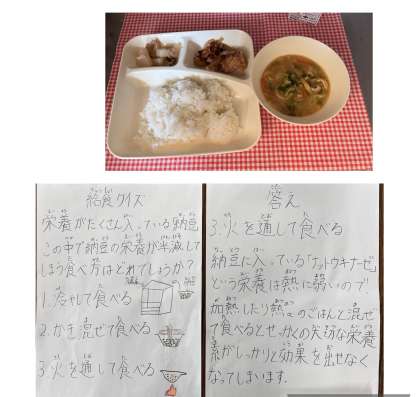 給食クイズ
栄養がたくさん入っている納豆
この中で納豆の栄養が半減して
しまう食べ方はどれでしょうか？
1.冷やして食べる
2.かき混ぜて食べる
3.火を通して食べる
答え
3.火を通して食べる
納豆に入っている「ナットウキナーゼ」
という栄養は熱に弱いので、
加熱したり熱々のごはんと混ぜ
て食べるとせっかくの大切な栄養
素がしっかりと効果を出せなく
なってしまいます。